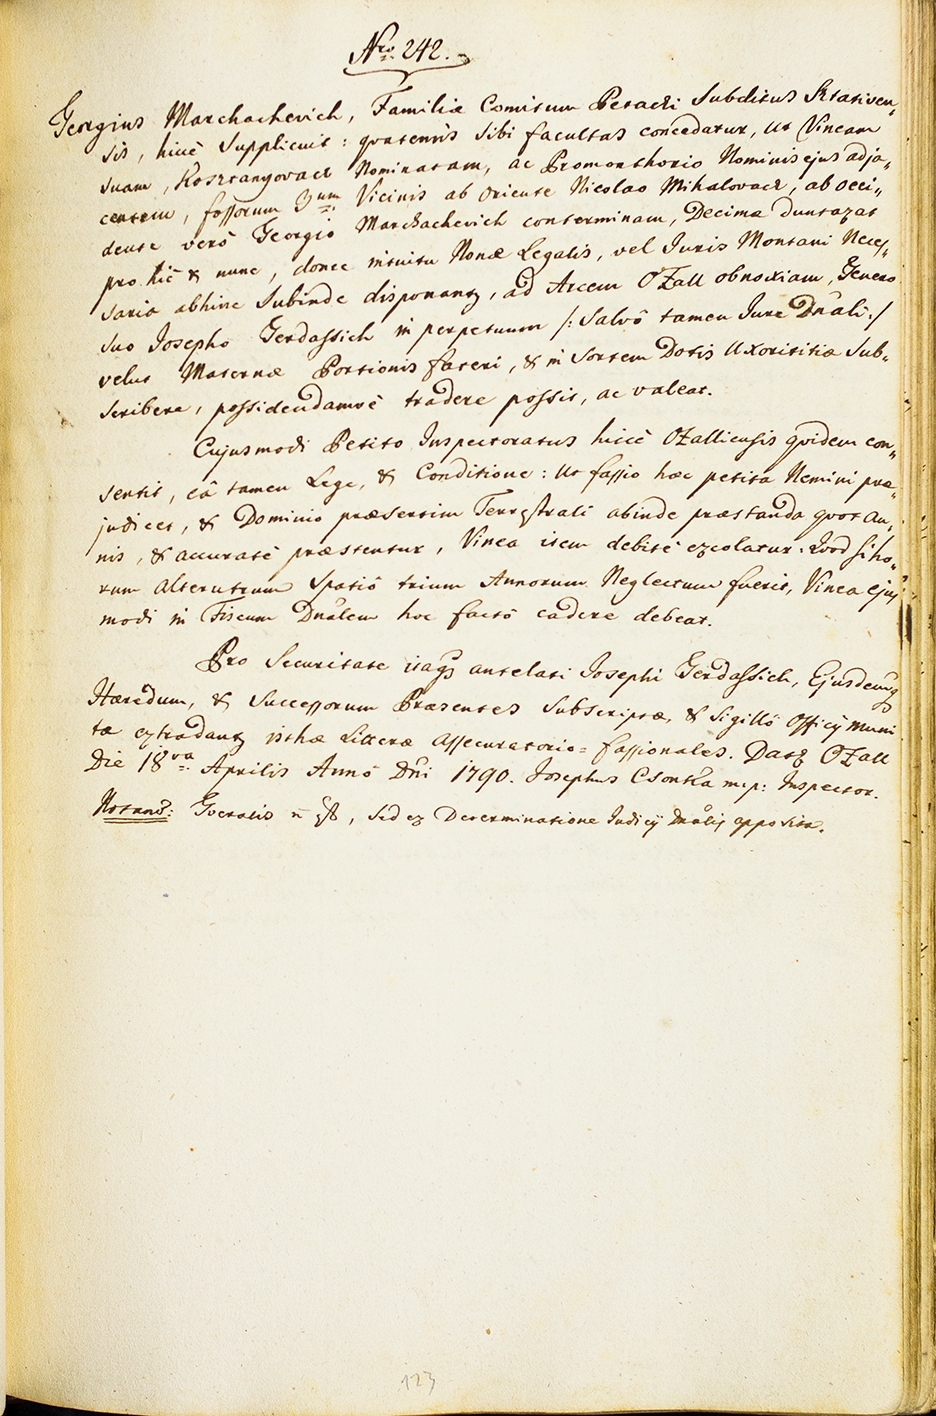 Nro. 242.
Georgius Marchachevich, Familiæ Comitum Petachi Subditus Stativen„
sis, hicce Supplicuit: quatenus sibi facultas concedatur, ut Vineam
suam, Kosztanyovacz Nominatam, ac Promonthorio Nominis ejus adja„
centem, fossorum 3um Vicinis ab oriente Nicolao Mihalovacz, ab occi„
dente verò Georgio Marchachevich conterminam, Decimæ duntaxat
pro hîc & nunc, donec intuitu Nonæ Legalis, vel Juris Montani Neces„
saria abhinc Subinde disponantq, ad Arcem Ozall obnoxiam, Genero
suo Josepho Gerdassich in perpetuum /: Salvô tamen Jure Dnali :/
velut Maternæ Portionis fateri, & in Sortem Dotis Uxorititiæ Sub„
scribere, possidendamvè tradere possit, ac valeat.
Cujusmodi Petito Inspectoratus hicce Ozalliensis quidem con„
sentit, eâ tamen Lege, & Conditione: Ut fassio hæc petita Nemini præ„
judicet, & Dominio præsertim Terrestrali abinde præstanda quot an„
nis, & accuratè præstentur, Vinea item debitè excolatur: Quod si ho„
rum alterutrum Spatiô trium Annorum Neglectum fuerit, Vinea ejus
modi in Fiscum Dnalem hoc factô cadere debeat.
Pro Securitate itaq antelati Josephi Gerdassich, Ejusdemq
Hæredum, & Successorum Præsentes Subscriptæ, & Sigillô Officy muni
tæ extradantq isthæ Litteræ Assecuratorio= fassionales. Datq Ozall
Die 18va Aprilis Annô Dni 1790. Josephus Csontka mp: Inspector.
Notand: , sed ex Determinatione Judicy Dnalis apposita.
123